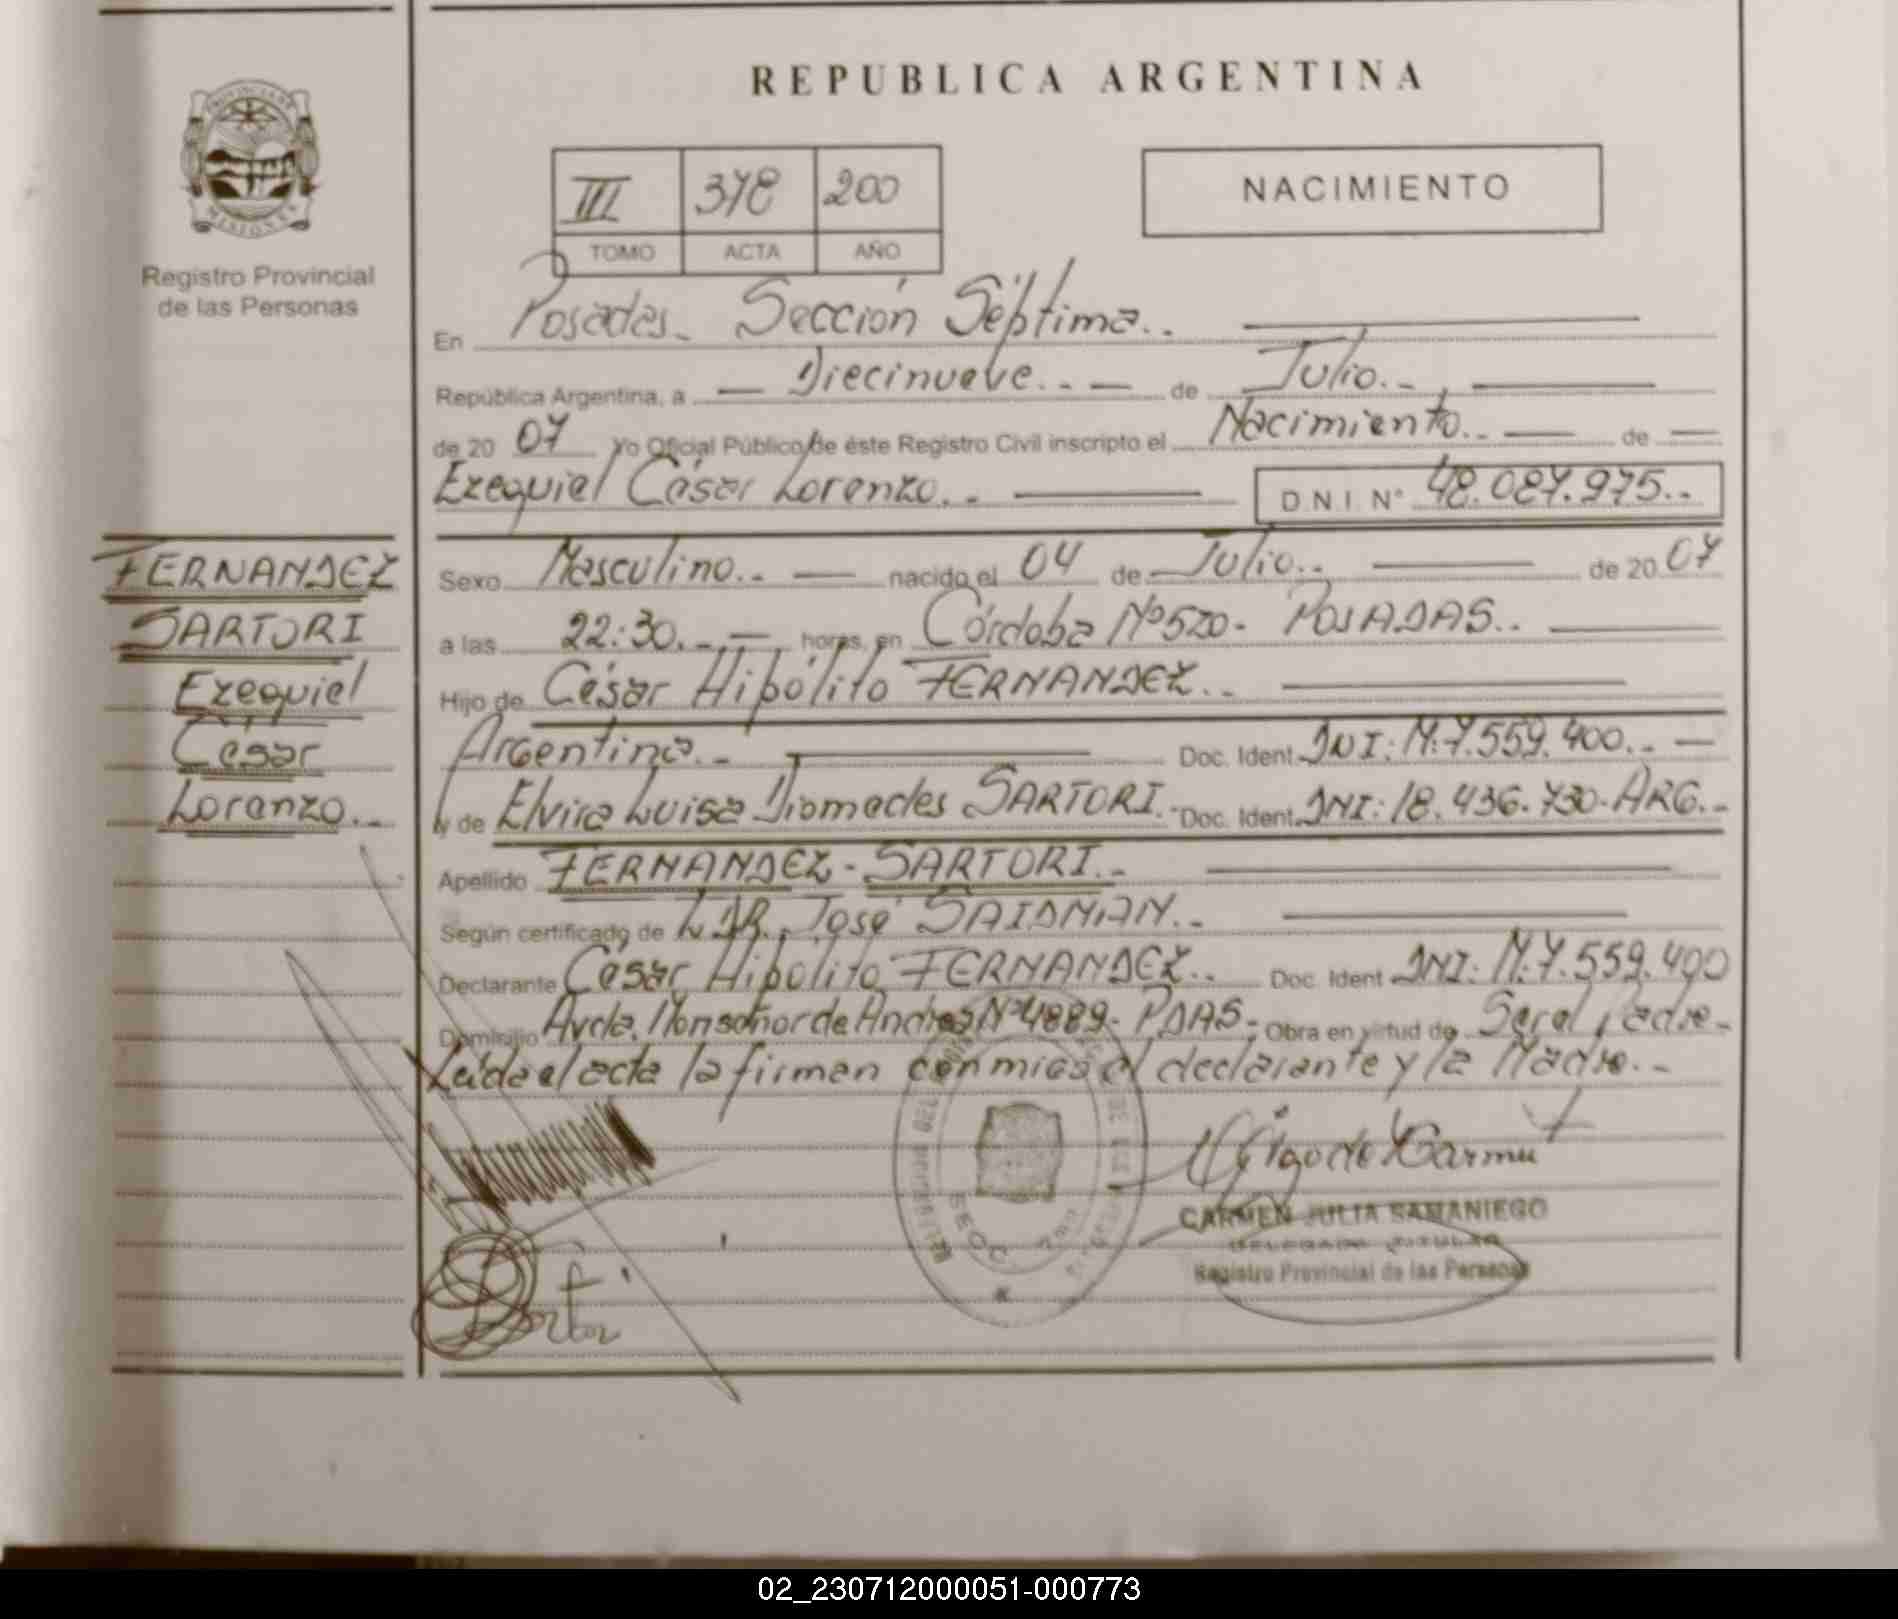 REPUBLICA ARGENTINA
PROVINCIA DE
MISIONES
Registro Provincial
de las Personas
III 378 200
TOMO ACTA AÑO
NACIMIENTO
En Posadas_ Sección Séptima..
República Argentina, a — Diecinueve..- — de Julio.-
de 20 07 Yo Oficial Público de éste Registro Civil inscripto el Nacimiento.- — de —
Ezequiel César Lorenzo.- D.N.I. N° 48.087.975..
FERNANDEZ
SARTORI
Ezequiel
César
Lorenzo.-
Sexo Masculino.. — nacido el 04 de Julio.. de 20 07
a las 22:30.- — horas, en Córdoba Nº 520- POSADAS..
Hijo de César Hipólito FERNANDEZ..
Argentina.- Doc. Ident. DNI: M.7.559.400.. —
y de Elvira Luisa Diomedes SARTORI.- Doc. Ident. DNI: 18.436.730-ARG.-
Apellido FERNANDEZ - SARTORI.-
Según certificado de DR. José SAIDMAN..
Declarante César Hipólito FERNANDEZ.. Doc. Ident DNI: M.7.559.400
Domicilio Avda. Monseñor de Andrea Nº 4889- PDAS- Obra en virtud de Padre-
Leída el acta la firman conmigo el declarante y la Madre.-
CARMEN JULIA SAMANIEGO
DELEGADA TITULAR
Registro Provincial de las Personas
02_230712000051-000773